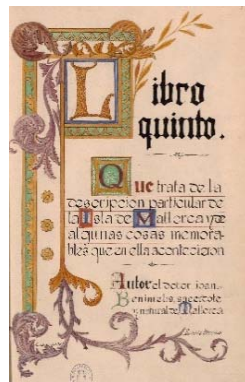 Libro
quinto.
Que trata de la
descripcion particular de
la Isla de Mallorca y de
algunas cosas memora-
bles que en ella acontecieron
Autor el dotor Joan
Binimelis, sacerdote
y natural de Mallorca